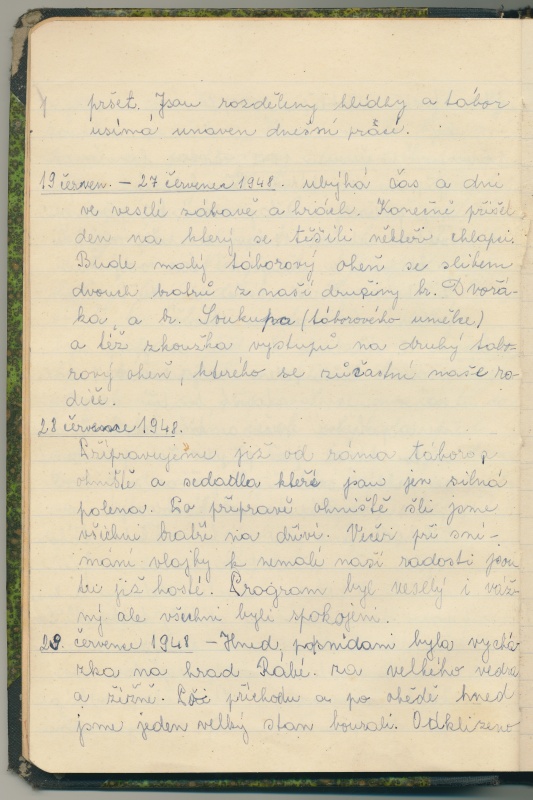 pršet. Jsou rozděleny hlídky a tábor
usíná unaven dnešní prací.
19 červen. – 27 července 1948. ubýhá čas a dni
ve veselé zábavě a hrách. Konečně přišel
den na který se těšili někteři chlapci.
Bude malý táborový oheň se slibem
dvouch bratrů z naší družiny br. Dvořá-
ka a br. Soukupa (táborového umělce)
a též zkouška výstupů na druhý tábo-
rový oheň, kterého se zůčastní naše ro-
diče.
28 července 1948.
Připravujeme již od rána táborop
ohniště a sedadla které jsou jen silná
polena. Po přípravě ohniště šli jsme
všichni bratři na dříví. Večer při sní-
mání vlajky k nemalé naší radosti jsou
tu již hosté. Program byl veselý i váž-
ný ale všichni byli spokojeni.
29. července 1948 – Hned posnídani byla vychá-
zka na hrad Rábí. za velkého vedra
a žízně. Po příchodu a po obědě hned
jsme jeden velký stan bourali. Odklizeno